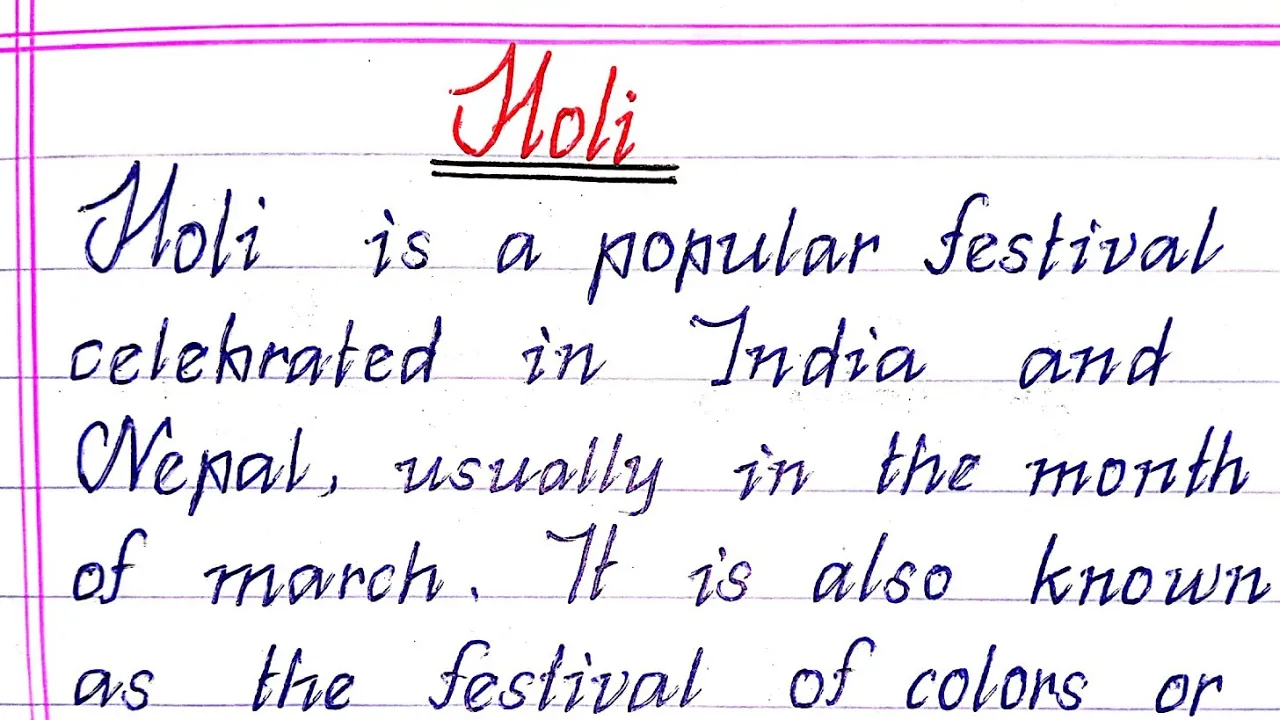 Holi
Holi is a popular festival
celebrated in India and
Nepal, usually in the month
of march. It is also known
as the festival of colors or